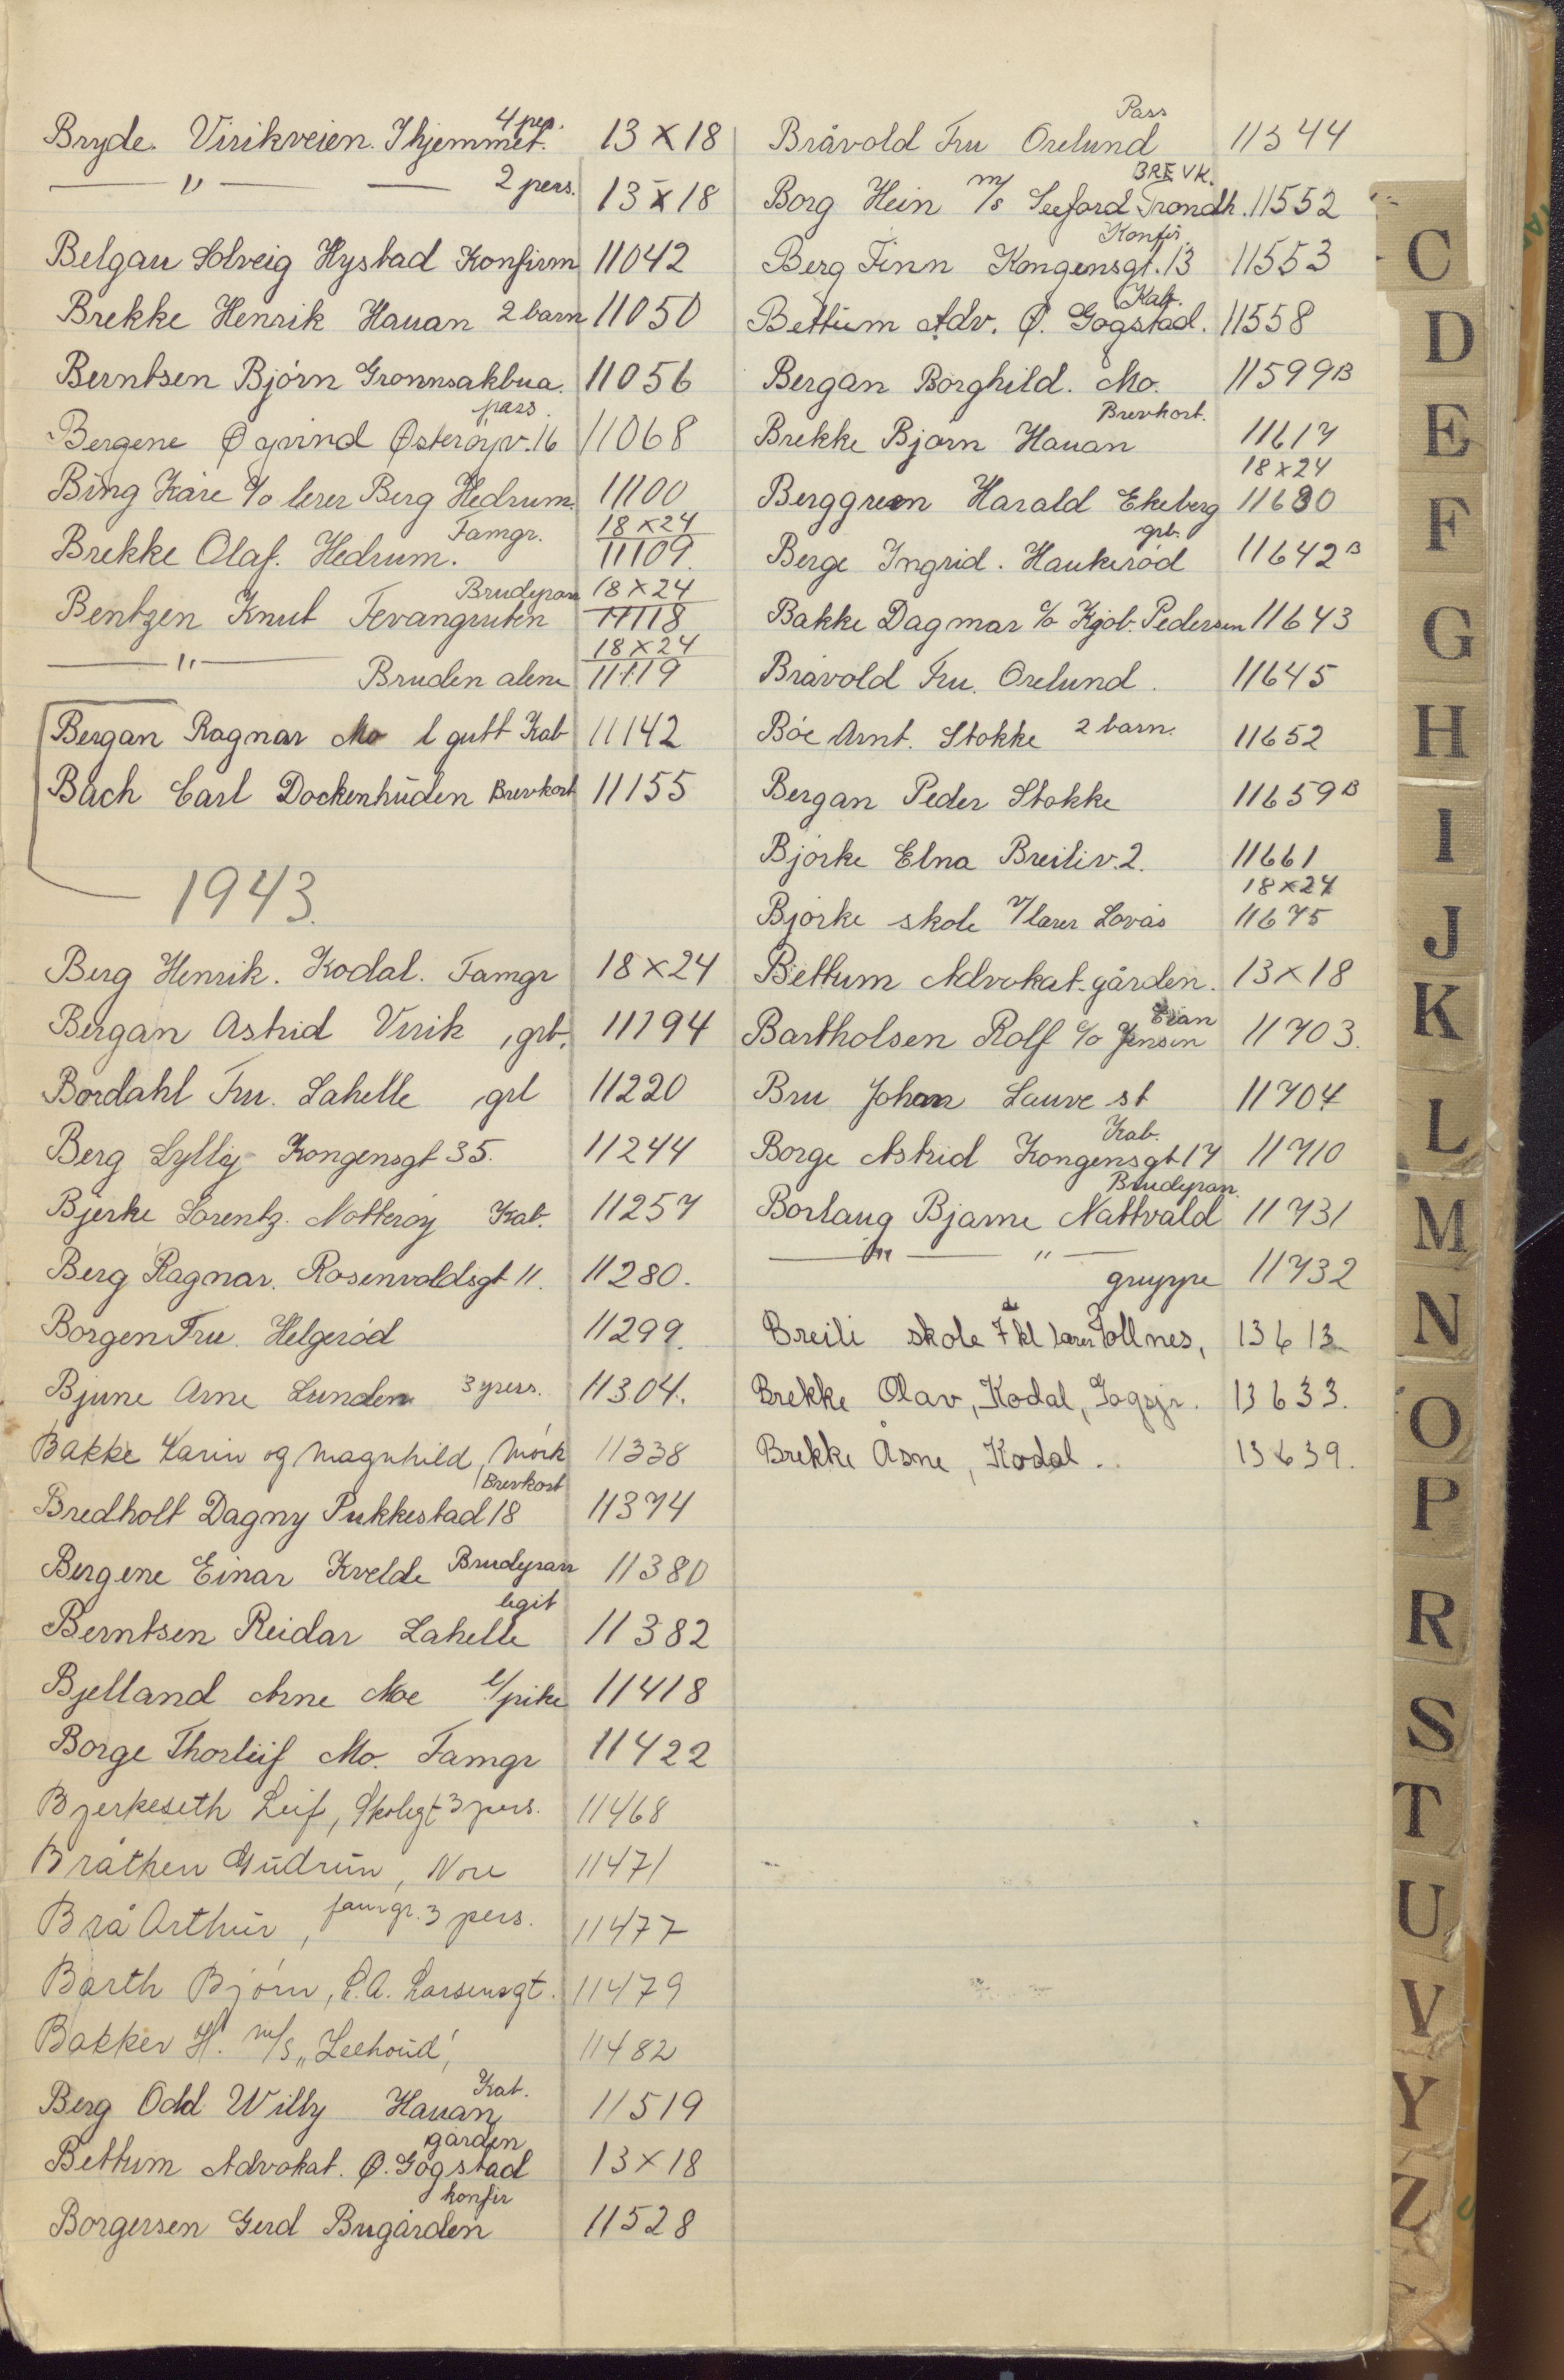 Bryde. Virikveien. I hjemmet. 4 pers. 13 x 18
— " — — 2 pers. 13 x 18
Belgau Solveig Hystad Konfirm 11042
Brekke Henrik Hauan 2 barn 11050
Berntsen Bjørn Grønnsakbua. 11056
Bergene Øyvind Østerøyv. 16 pass. 11068
Bing Kåre c/o lerer Berg Hedrum. 11100
Brekke Olaf. Hedrum. Famgr. 18 x 24 11109.
Bentzen Knut Tevangruten Brudepar 18 x 24 11118
— " — Bruden alene 18 x 24 11119
Bergan Ragnar Mo l gutt Kab 11142
Bach Carl Dockenhuden Brevkort 11155
1943.
Berg Henrik. Kodal. Famgr 18 x 24
Bergan Astrid Virik, grb. 11194
Bordahl Fru. Lahelle grl 11220
Berg Lylly Kongensgt 35. 11244
Bjerke Lorentz. Nøtterøy Kab. 11257
Berg Ragnar. Rosenvoldsgt 11. 11280.
Borgen Fru. Helgerød 11299.
Bjune Arne Lunden 3 pers. 11304.
Bakke Karin og Magnhild, Mørk 11338
Bredholt Dagny Pukkestad 18 Brevkort 11374
Bergene Einar Kvelde Brudepar 11380
Berntsen Reidar Lahelle legit 11382
Bjelland Arne Moe l/pike 11418
Borge Thorleif Mo. Famgr 11422
Bjerkeseth Leif, Skolegt 3 pers. 11468
Bråthen Gudrun, Nore 11471
Brå Arthur, famgr. 3 pers. 11477
Barth Bjørn, L.A. Larsensgt. 11479
Bakker H. m/s "Leehoud", 11482
Berg Odd Willy Hauan Kab. 11519
Bettum Advokat. Ø. Gogstad gården 13 x 18
Borgersen Gerd Bugården konfir 11528
Bråvold Fru Orelund Pass 11544
Borg Hein m/s Seeford Trondh. BREVK. 11552
Berg Finn Kongensgt. 13 Konfir. 11553
Bettum Adv. Ø. Gogstad. Kab. 11558
Bergan Borghild. Mo. 11599 B
Brekke Bjørn Hauan Brevkort. 11617
Berggreen Harald Ekeberg 18 x 24 11630
Berge Ingrid. Haukerød grb. 11642 B
Bakke Dagmar c/o Kjøb. Pedersen 11643
Bråvold Fru. Orelund. 11645
Bøe Arnt. Stokke 2 barn. 11652
Bergan Peder Stokke 11659 B
Bjørke Elna Breiliv. 2. 11661
Bjørke skole v/lærer Lovås 18 x 24 11675
Bettum Advokat. gården. 13 x 18
Bartholsen Rolf c/o Jensen Eian 11703.
Bru Johan Sauve st 11704
Borge Astrid Kongensgt 17 Kab. 11710
Borlaug Bjarne Nattvald Brudepar. 11731
— " — " — gruppe 11732
Breili skole 7 de kl lærer Tollnes, 13613
Brekke Olav, Kodal, Gogsjr. 13633.
Brekke Åsne, Kodal. 13639.
C
D
E
F
G
H
I
J
K
L
M
N
O
P
R
S
T
U
V
Y
Z